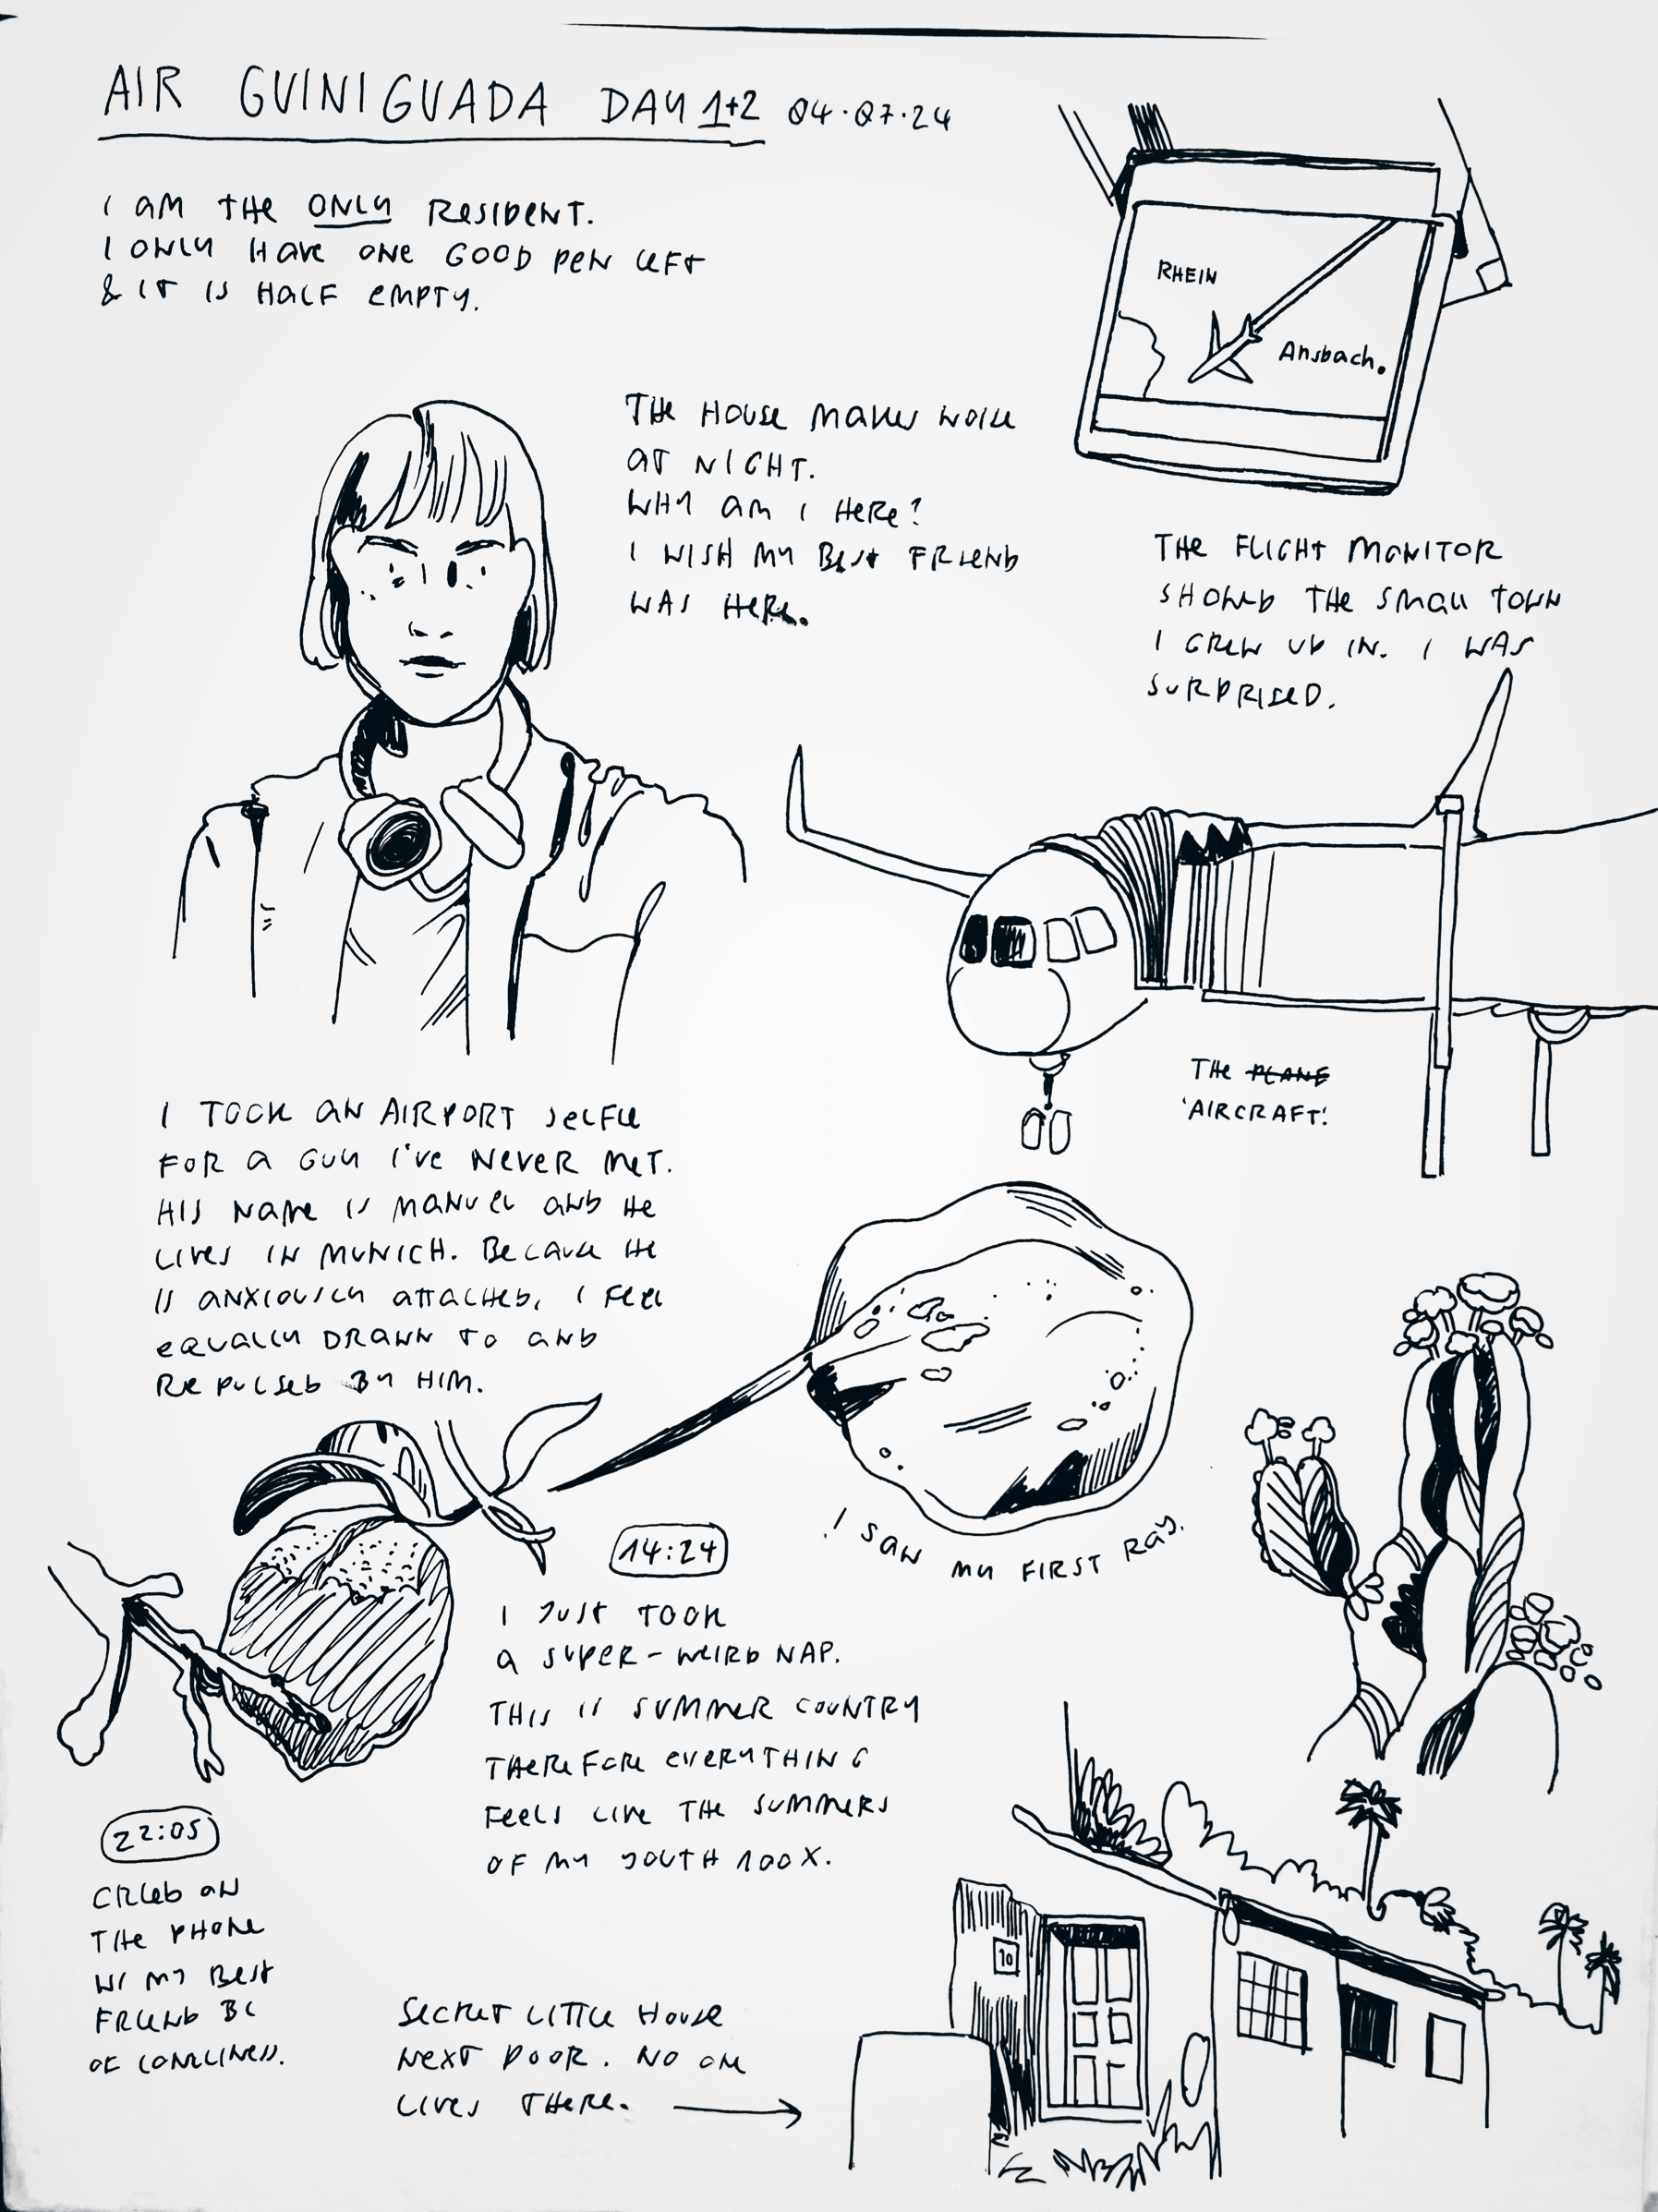 AIR GUINIGUADA DAY 1+2 04.07.24
I AM THE ONLY RESIDENT.
I ONLY HAVE ONE GOOD PEN LEFT
& IT IS HALF EMPTY.
RHEIN
Ansbach.
THE HOUSE MAKES NOISE
AT NIGHT.
WHY AM I HERE?
I WISH MY BEST FRIEND
WAS HERE.
THE FLIGHT MONITOR
SHOWED THE SMALL TOWN
I GREW UP IN. I WAS
SURPRISED.
THE PLANE
'AIRCRAFT'.
I TOOK AN AIRPORT SELFIE
FOR A GUY I'VE NEVER MET.
HIS NAME IS MANUEL AND HE
LIVES IN MUNICH. BECAUSE HE
IS ANXIOUSLY ATTACHED, I FEEL
EQUALLY DRAWN TO AND
REPULSED BY HIM.
I SAW MY FIRST RAY.
14:24
I JUST TOOK
A SUPER-WEIRD NAP.
THIS IS SUMMER COUNTRY
THEREFORE EVERYTHING
FEELS LIKE THE SUMMERS
OF MY YOUTH 100X.
22:05
CRIED ON
THE PHONE
W/ MY BEST
FRIEND BC
OF LONELINESS.
SECRET LITTLE HOUSE
NEXT DOOR. NO ONE
LIVES THERE.
10